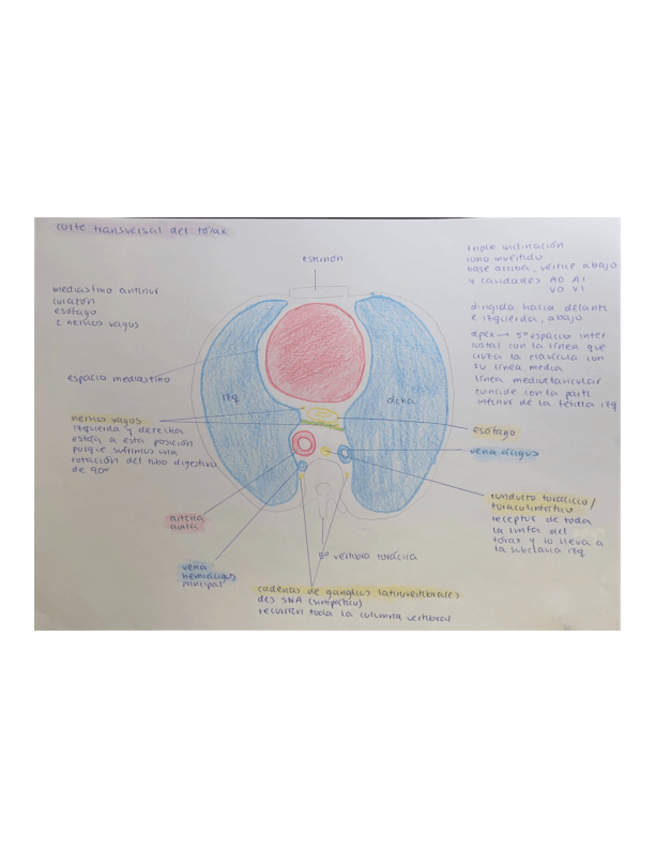 corte transversal del tórax
esternón
mediastino anterior
corazón
esófago
2 nervios vagos
espacio mediastino
izq
dcha
nervios vagos
izquierda y derecha
están a esta posición
porque sufrimos una
rotación del tubo digestivo
de 90º
arteria
vena
hemiázigos
principal
8º vértebra torácica
cadenas de ganglios laterovertebrales
des SNA (simpático)
recorren toda la columna vertebral
triple inclinación
cono invertido
base arriba, vértice abajo
4 cavidades AD AI
VD VI
dirigida hacia delante
e izquierda, abajo
ápex → 5º espacio inter
costal con la línea que
cruza la clavícula con
su línea media
línea medioclavicular
coincide con la parte
inferior de la tetilla izq
esófago
vena ázigos
conducto torácico/
receptor de toda
la linfa del
tórax y lo lleva a
la subclavia izq